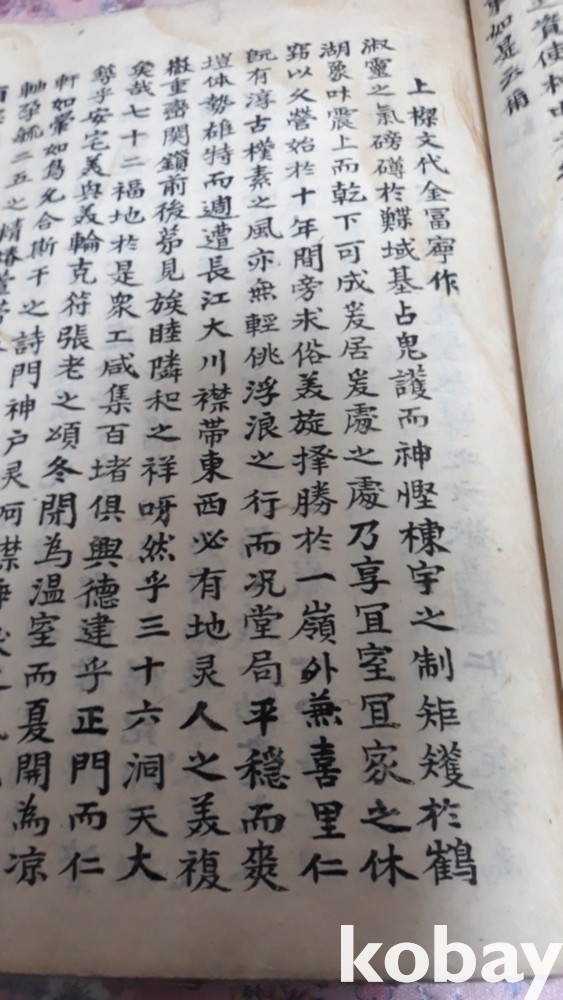 上樑文代金富寧作
淑靈之氣磅礴於鰈域基占鬼護而神慳棟宇之制矩矱於鶴
湖象叶震上而乾下可成爰居爰處之處乃享冝室冝家之休
窃以父營始於十年間旁求俗美旋擇勝於一嶺外兼喜里仁
旣有淳古樸素之風亦無輕佻浮浪之行而况堂局平穩而爽
塏体勢雄特而週遭長江大川襟帶東西必有地灵人之美複
嶽重啇関鎖前後弟見族睦隣和之祥呀然乎三十六洞天大
矣哉七十二福地於是衆工咸集百堵俱興德建乎正門而仁
尊乎安宅美與美輪克符張老之頌冬開為温室而夏開為凉
軒如翬如鳥允合斯干之詩門神户灵呵噤
軸孕毓二五之精
如是云甬
資使
kobay